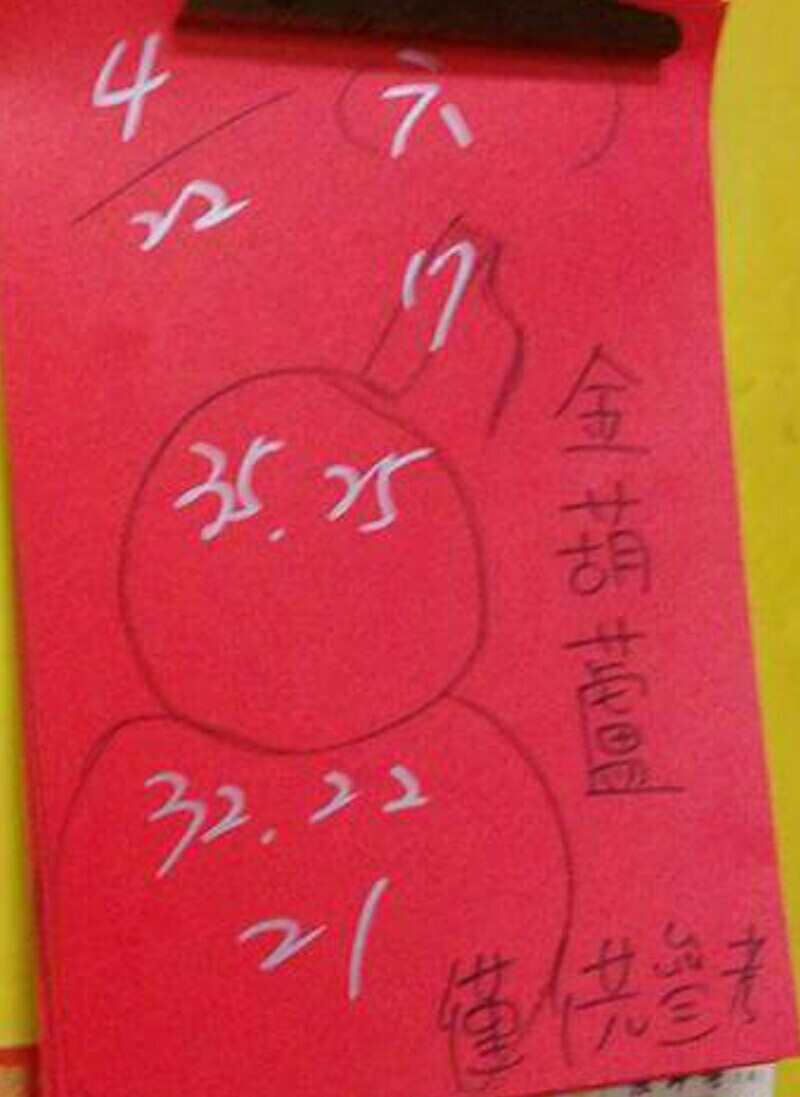 4/22 六
17
35.25
32.22
21
金葫蘆
僅供參考